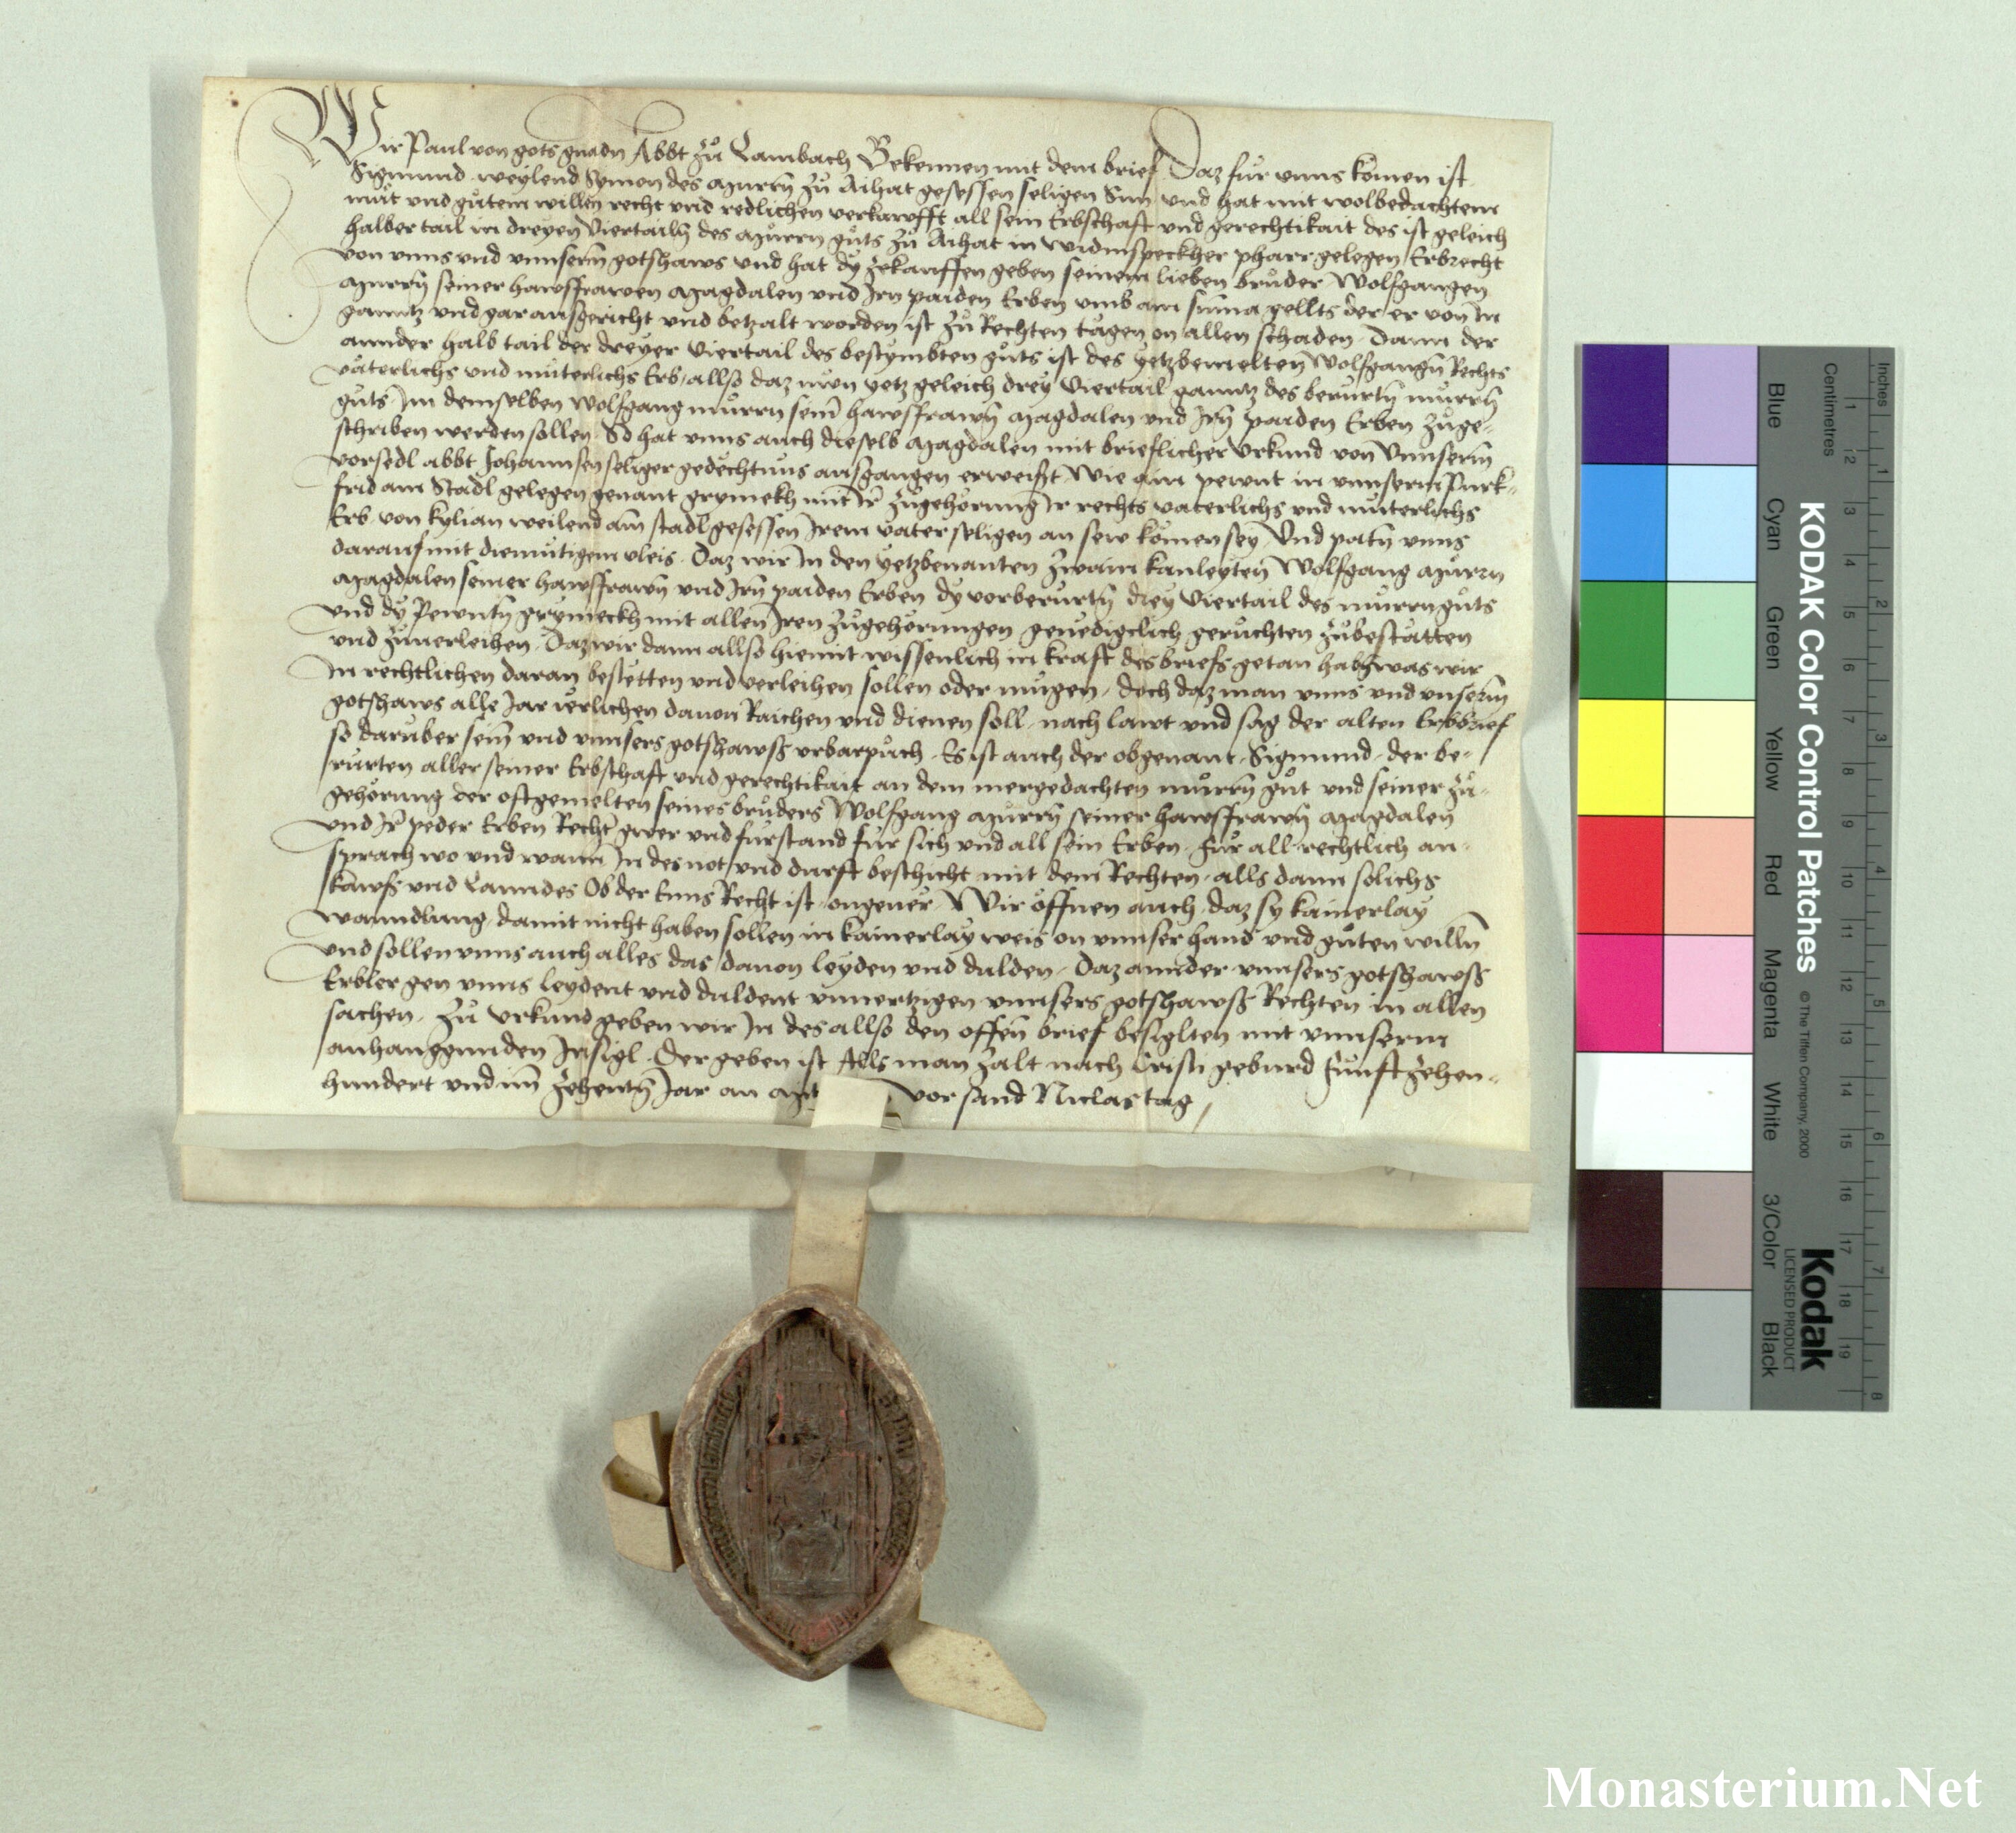 Wir Paul von gots gnadn Abbt zů Lambach Bekennen mit dem brief Daz für vnns komen ist
Sigmund weylend Symon des Murrn̄ zů Aihat gesessen seligen Sun vnd hat mit wolbedachtem
můt vnd gůtem willen recht vnd redlichen verkawfft all sein Erbschaft vnd gerechtikait des ist geleich
halber tail in dreyen Viertailn̄ des Můrrn gůts zů Aihat in Widmspeckher pharr gelegen Erbrecht
von vnns vnd vnnserm̄ gotshaws vnd hat dÿ zekauffen geben seinem lieben brůder Wolfgangen
Murrn̄ seiner hawsfrawen Magdalen vnd Irn paiden Erben vmb ain sum̄a gellts der er von In
ganntz vnd gar ausgericht vnd betzalt worden ist zů Rechten tägen on allen schaden Dann der
annder halb tail der dreyer Viertail des bestymbten gůts ist des yetzbemelten Wolfgangn̄ Rechts
väterlichs vnd můterlichs Erb allso daz nůn yetz geleich drey Viertail ganntz des berůrtn̄ můrrn̄
gůts Im demselben Wolfgang můrrn sein̄ hawsfrawn̄ Magdalen vnd Irn̄ paiden Erben zůge-
schriben werden sollen So hat vnns auch dieselb Magdalen mit brieflicher Vrkund von Vnnserm̄
vorfedl abbt Johannsen seliger gedechtnůs ausgangen erweißt Wie ain pewnt in vnnserm Purk-
frid am Stadl gelegen genant grymekh mit Ir̄ zůgehörung Ir rechts vaterlichs vnd můterlichs
Erb von kylian weilend am̄ stadl gesessen Irem vater seligen an sew komen sey Vnd patn̄ vnns
darauf mit diemütigem vleis Daz wir In den yetzbenanten zwain kanleyten Wolfgang Můrrn
Magdalen seiner hawsfrawn̄ vnd Irn̄ paiden Erben dy vorberurtn̄ drey Viertail des můrrn gůts
vnd dÿ Pewntn̄ grymeckh mit allen Iren zůgehörungen genedigclich gerůchten zůbestätten
vnd zůuerleihen Daz wir dann allso hiemit wissenlich in kraft des briefs getan habn̄ was wir
In rechtlichen daran bestetten vnd verleihen sollen oder mugen doch daz man vnns vnd vnserm̄
gotshaws alle Jar ierlichen dauon Raichen vnd dienen soll nach lawt vnd sag der alten Erbbrief
so darüber sein̄ vnd vnnsers gotshawss vrbarpůch Es ist auch der obgenant Sigmund der be-
rürten aller seiner Erbschaft vnd gerechtikait an dem mergedachten můrrn̄ gůt vnd seiner zů-
gehörung der oftgemelten seines brůders Wolfgang Můrrn̄ seiner hawsfrawn̄ Magdalen
vnd Ir̄ peder Erben Recht gwer vnd fürstand für sich vnd all sein Erben für all rechtlich an-
sprach wo vnd wann In des not vnd durft beschicht mit dem Rechten alls dann solichs
kawfs vnd Lanndes Ob der Enns Recht ist ongeuer Wir öffnen auch daz sy kainerlay
wanndlung damit nicht haben sollen in kainerlay weis on vnnser hand vnd gůten willn̄
vnd sollen vnns auch alles das dauon leyden vnd dulden Daz annder vnnsers gotshawss
Erbler gen vnns leydent vnd duldent vnuertzigen vnnsers gotshawss Rechten in allen
sachen Zů Vrkund geben wir In des allso den offen̄ brief besiglten mit vnnserm
anhanggunden Insigl Der geben ist Alls man zalt nach Cristi geburd fünftzehen-
hundert vnd im̄ zehentn̄ Jar an vor sand Niclas tag
KODAK Color Control Patches
© The Tiffen Company, 2000
Kodak
LICENSED PRODUCT
Blue Cyan Green Yellow Red Magenta White 3/Color Black
Inches 1 2 3 4 5 6 7 8
Centimetres 1 2 3 4 5 6 7 8 9 10 11 12 13 14 15 16 17 18 19
Monasterium.Net